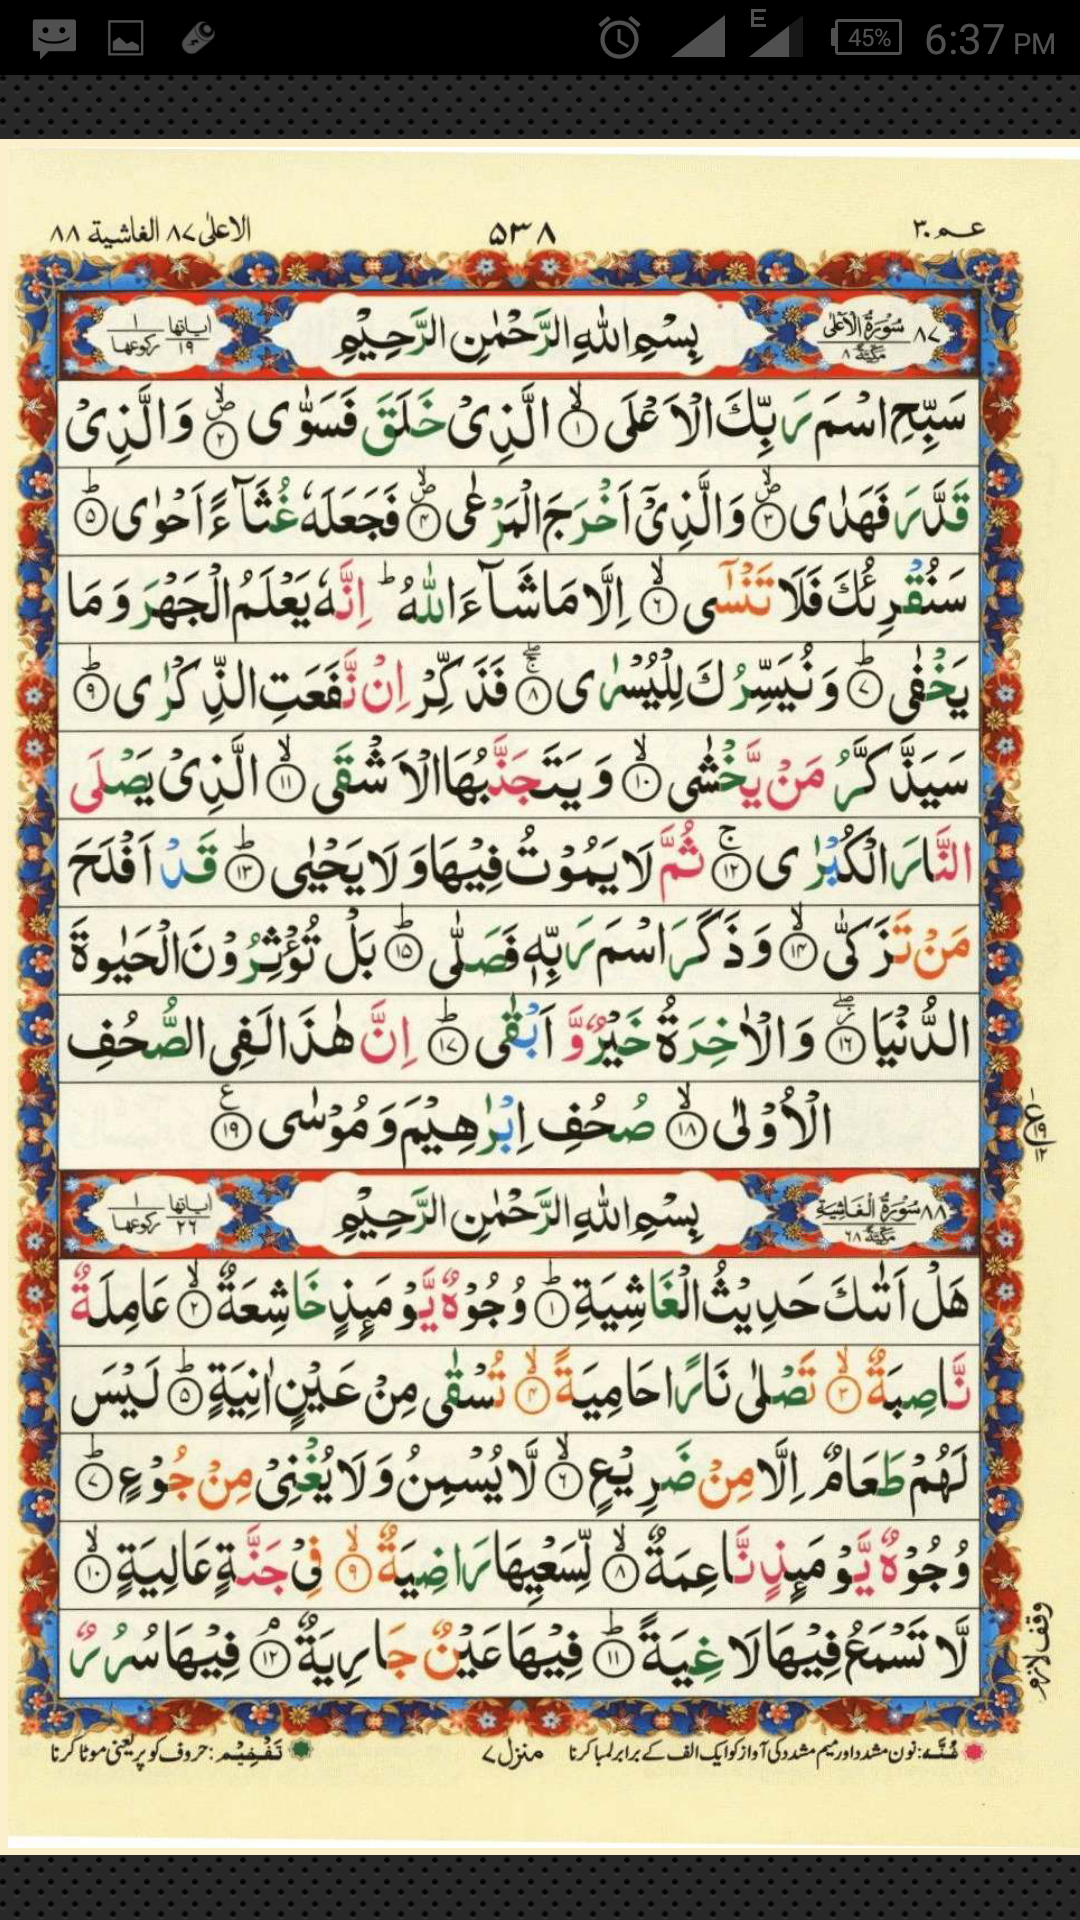 45% 6:37 PM
E
عم ٣٠ ٥٣٨ الاعلٰى ٨٧ الغاشية ٨٨
٨٧ سُوْرَةُ الْاَعْلٰى مَكِّيَّةٌ ٨ بِسْمِ اللّٰهِ الرَّحْمٰنِ الرَّحِيْمِ اٰياتها ١٩ ركوعها ١
سَبِّحِ اسْمَ رَبِّكَ الْاَعْلَى ۙ‏﴿۱﴾ الَّذِىْ خَلَقَ فَسَوّٰى ۪ۙ‏﴿۲﴾ وَالَّذِىْ
قَدَّرَ فَهَدٰى ۪ۙ‏﴿۳﴾ وَالَّذِىْۤ اَخْرَجَ الْمَرْعٰى ۪ۙ‏﴿۴﴾ فَجَعَلَهٗ غُثَآءً اَحْوٰى ؕ‏﴿۵﴾
سَنُقْرِئُكَ فَلَا تَنْسٰٓى ۙ‏﴿۶﴾ اِلَّا مَا شَآءَ اللّٰهُ ؕ اِنَّهٗ يَعْلَمُ الْجَهْرَ وَمَا
يَخْفٰى ؕ‏﴿۷﴾ وَنُيَسِّرُكَ لِلْيُسْرٰى ۖۚ‏﴿۸﴾ فَذَكِّرْ اِنْ نَّفَعَتِ الذِّكْرٰى ؕ‏﴿۹﴾
سَيَذَّكَّرُ مَنْ يَّخْشٰى ۙ‏﴿۱۰﴾ وَيَتَجَنَّبُهَا الْاَشْقَى ۙ‏﴿۱۱﴾ الَّذِىْ يَصْلَى
النَّارَ الْكُبْرٰى ۚ‏﴿۱۲﴾ ثُمَّ لَا يَمُوْتُ فِيْهَا وَلَا يَحْيٰى ؕ‏﴿۱۳﴾ قَدْ اَفْلَحَ
مَنْ تَزَكّٰى ۙ‏﴿۱۴﴾ وَذَكَرَ اسْمَ رَبِّهٖ فَصَلّٰى ؕ‏﴿۱۵﴾ بَلْ تُؤْثِرُوْنَ الْحَيٰوةَ
الدُّنْيَا ۖ‏﴿۱۶﴾ وَالْاٰخِرَةُ خَيْرٌ وَّاَبْقٰى ؕ‏﴿۱۷﴾ اِنَّ هٰذَا لَفِى الصُّحُفِ
الْاُوْلٰى ۙ‏﴿۱۸﴾ صُحُفِ اِبْرٰهِيْمَ وَمُوْسٰى ‏﴿۱۹﴾
ع ١٩ ١٢
٨٨ سُوْرَةُ الْغَاشِيَةِ مَكِّيَّةٌ ٦٨ بِسْمِ اللّٰهِ الرَّحْمٰنِ الرَّحِيْمِ اٰياتها ٢٦ ركوعها ١
هَلْ اَتٰٮكَ حَدِيْثُ الْغَاشِيَةِ ؕ‏﴿۱﴾ وُجُوْهٌ يَّوْمَٮِٕذٍ خَاشِعَةٌ ۙ‏﴿۲﴾ عَامِلَةٌ
نَّاصِبَةٌ ۙ‏﴿۳﴾ تَصْلٰى نَارًا حَامِيَةً ۙ‏﴿۴﴾ تُسْقٰى مِنْ عَيْنٍ اٰنِيَةٍ ؕ‏﴿۵﴾ لَيْسَ
لَهُمْ طَعَامٌ اِلَّا مِنْ ضَرِيْعٍ ۙ‏﴿۶﴾ لَّا يُسْمِنُ وَلَا يُغْنِىْ مِنْ جُوْعٍ ؕ‏﴿۷﴾
وُجُوْهٌ يَّوْمَٮِٕذٍ نَّاعِمَةٌ ۙ‏﴿۸﴾ لِّسَعْيِهَا رَاضِيَةٌ ۙ‏﴿۹﴾ فِىْ جَنَّةٍ عَالِيَةٍ ۙ‏﴿۱۰﴾
لَّا تَسْمَعُ فِيْهَا لَاغِيَةً ؕ‏﴿۱۱﴾ فِيْهَا عَيْنٌ جَارِيَةٌ ۘ‏﴿۱۲﴾ فِيْهَا سُرُرٌ
وقف لازم
غُنَّہ: نون مشدد اور میم مشدد کی آواز کو ایک الف کے برابر لمبا کرنا منزل ٧ تَفْخِیْم: حروف کو پُر یعنی موٹا کرنا